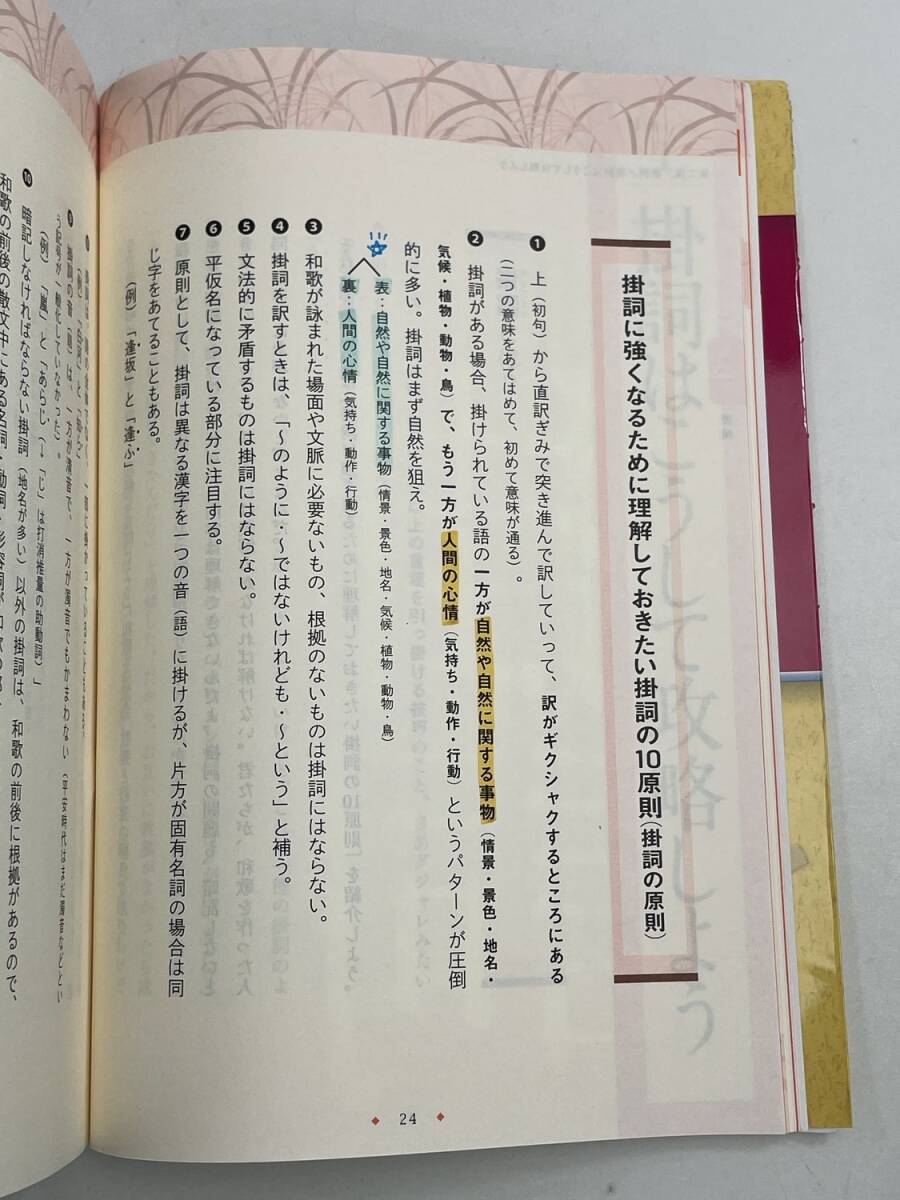 掛詞に強くなるために理解しておきたい掛詞の10原則(掛詞の原則)
❶ 上(初句)から直訳ぎみで突き進んで訳していって、訳がギクシャクするところにある
(二つの意味をあてはめて、初めて意味が通る)。
❷ 掛詞がある場合、掛けられている語の一方が自然や自然に関する事物(情景・景色・地名・
気候・植物・動物・鳥)で、もう一方が人間の心情(気持ち・動作・行動)というパターンが圧倒
的に多い。掛詞はまず自然を狙え。
表:自然や自然に関する事物(情景・景色・地名・気候・植物・動物・鳥)
裏:人間の心情(気持ち・動作・行動)
❸ 和歌が詠まれた場面や文脈に必要ないもの、根拠のないものは掛詞にはならない。
❹ 掛詞を訳すときは、「〜のように・〜ではないけれども・〜という」と補う。
❺ 文法的に矛盾するものは掛詞にはならない。
❻ 平仮名になっている部分に注目する。
❼ 原則として、掛詞は異なる漢字を一つの音(語)に掛けるが、片方が固有名詞の場合は同
じ字をあてることもある。
(例)「逢坂」と「逢ふ」
24
❾ 掛詞の音(題)は、一方が清音で、一方が濁音でもかまわない(平安時代はまだ濁音などとい
う記号が一般化していなかった)。
(例)「嵐」と「あらじ(→「じ」は打消推量の助動詞)」
❿ 暗記しなければならない掛詞(地名が多い)以外の掛詞は、和歌の前後に根拠があるので、
和歌の前後の散文中にある名詞・動詞・形容詞が